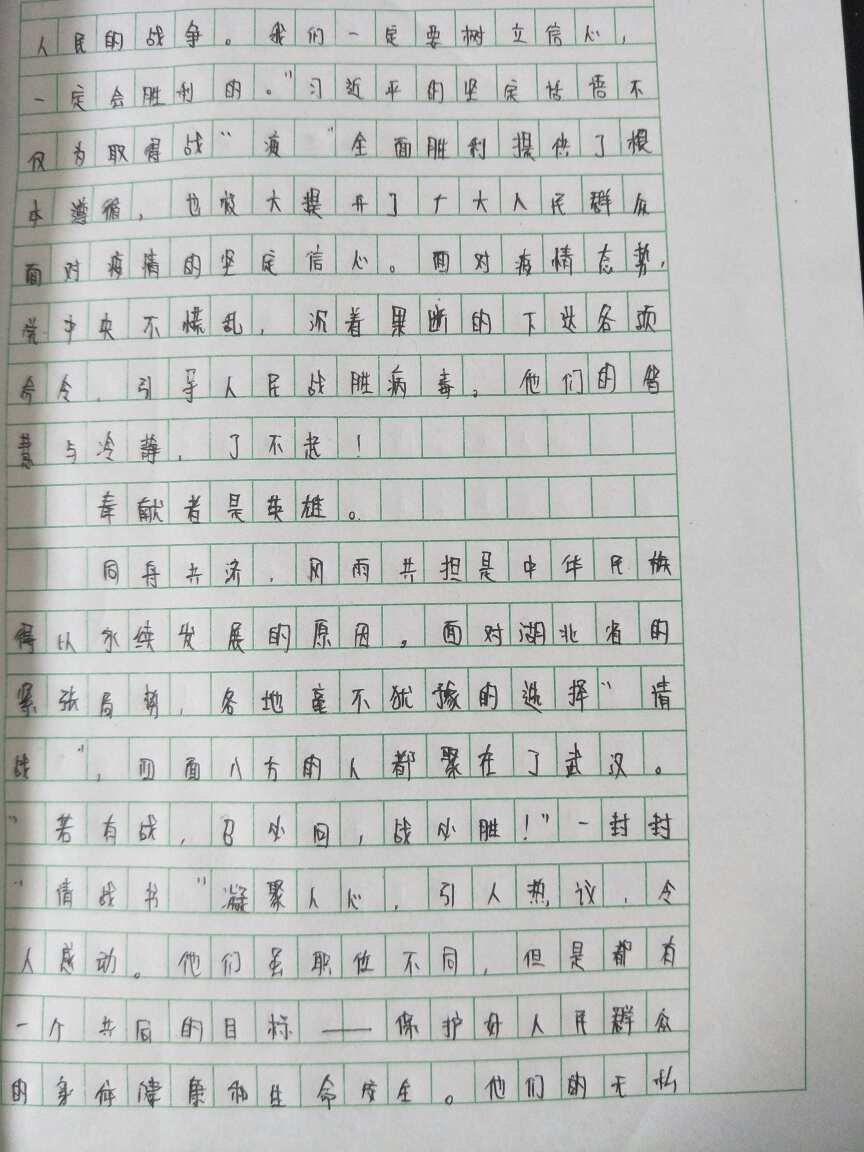 人民的战争。我们一定要树立信心,
一定会胜利的。"习近平的坚定话语不
仅为取得战"疫"全面胜利提供了根
本遵循,也极大提升了广大人民群众
面对疫情的坚定信心。面对疫情态势,
党中央不慌乱,沉着果断的下达各项
命令,引导人民战胜病毒。他们的智
慧与冷静,了不起!
奉献者是英雄。
同舟共济,风雨共担是中华民族
得以永续发展的原因。面对湖北省的
紧张局势,各地毫不犹豫的选择"请
战",四面八方的人都聚在了武汉。
"若有战,召必回,战必胜!"一封封
"请战书"凝聚人心,引人热议,令
人感动。他们虽职位不同,但是都有
一个共同的目标——保护好人民群众
的身体健康和生命安全。他们的无私